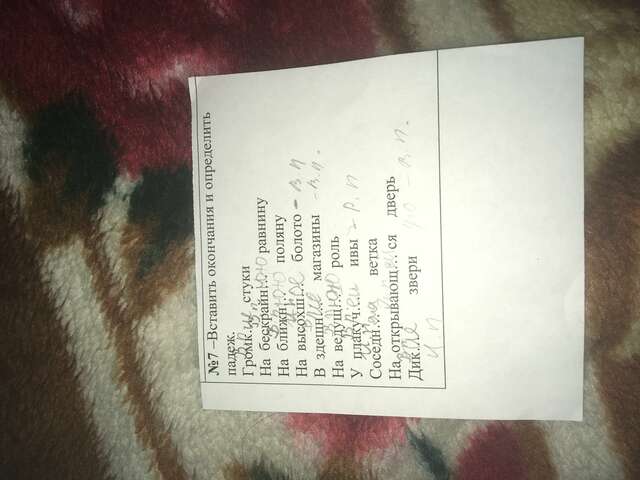 №7 –Вставить окончания и определить
падеж.
Громк... стуки
На бескрайн...юю равнину
На ближн...юю поляну
На высохш...ее болото – в.п
В здешн...ие магазины – в.п.
На ведущ...ую роль
У плакуч...ей ивы – р.п
Соседн...яя ветка
На открывающ...ся дверь – в.п.
Дик...ие звери
и п